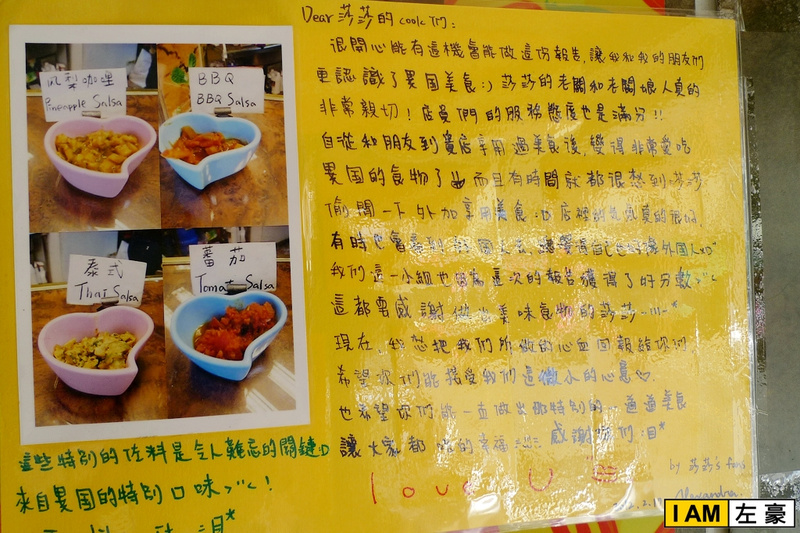 鳳梨咖哩
Pineapple Salsa
BBQ
BBQ Salsa
泰式
Thai Salsa
蕃茄
Tomato Salsa
這些特別的佐料是令人難忘的關鍵:D
來自異国的特別口味>///<!
Dear 莎莎的 coolc 們:
很開心能有這機會能做這份報告,讓我和我的朋友們
更認識了異国美食:) 莎莎的老闆和老闆娘人真的
非常親切!店員們的服務態度也是滿分!!
自從和朋友到貴店享用過美食後,變得非常愛吃
異国的食物了 而且有時間就都很想到莎莎
偷閒一下外加享用美食:D 店裡的氣氛真的很好,
有時也會 外國人xD"
我們這一小組也因為這次的報告獲得了好分數>///<
這都要感謝 美味食物的莎莎~///~*
現在,我想把我們所做的心血回報給你們
希望你們能接受我們這微小的心意♡.
也希望你們能一直做出那特別的一道道美食
讓大家都 的幸福 感謝你們:目*
I love U
by 莎莎's fans
Alexandra
I AM 左豪